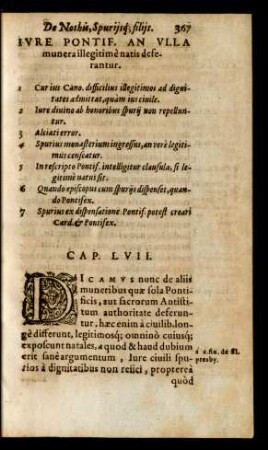 De Nothis, Spurijsq́; filijs. 367
IVRE PONTIF. AN VLLA
munera illegitimè natis deferantur.
1 Cur ius Cano. difficilius illegitimos ad dignitates
admittat, quàm ius ciuile.
2 Iure diuino ab honoribus spurij non repelluntur.
3 Alciati error.
4 Spurius monasterium ingressus, an verè legitimus
censeatur.
5 In rescripto Pontif. intelligitur clausula, si legitimè
natus sit.
6 Quando episcopus cum spurijs dispenset, quando
Pontifex.
7 Spurius ex dispensatione Pontif. potest creari
Card. & Pontifex.
CAP. LVII.
DICAMVS nunc de aliis
muneribus quæ sola Pontificis,
aut sacrorum Antistitum
authoritate deferuntur,
hæc enim à ciuilib. longè
differunt, legitimosq; omninò cuiusq;
exposcunt natales, a quod & haud dubium
erit sanè argumentum, Iure ciuili spurios
à dignitatibus non reiici, propterea
quòd
a c. fin. de fil.
presby.